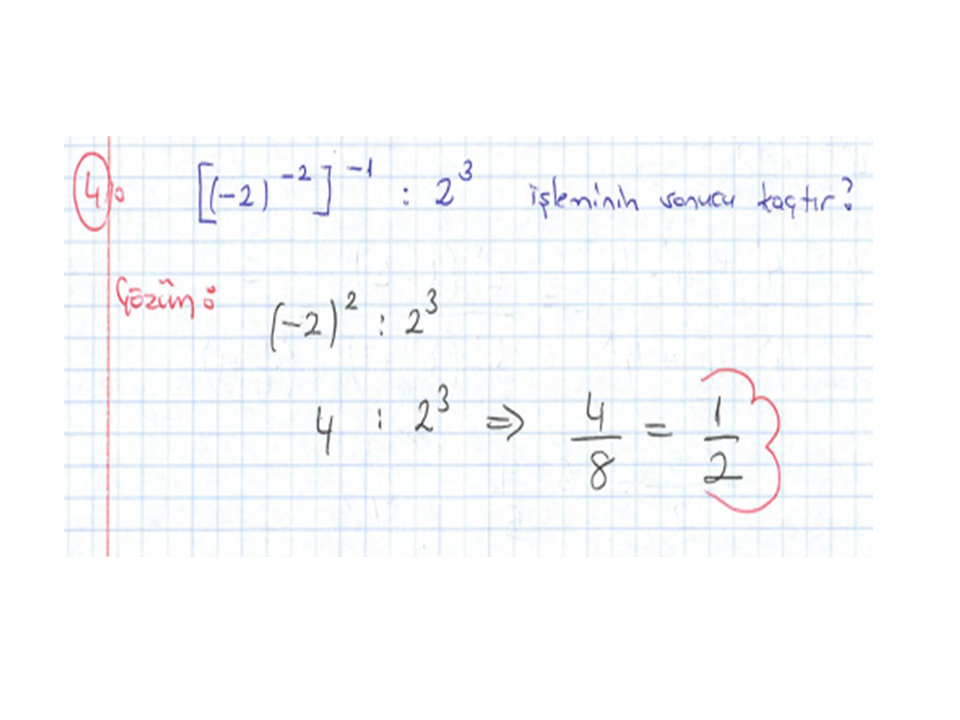 4) [(-2)⁻²]⁻¹ : 2³ işleminin sonucu kaçtır?
Çözüm:
(-2)² : 2³
4 : 2³ ⇒ 4/8 = 1/2